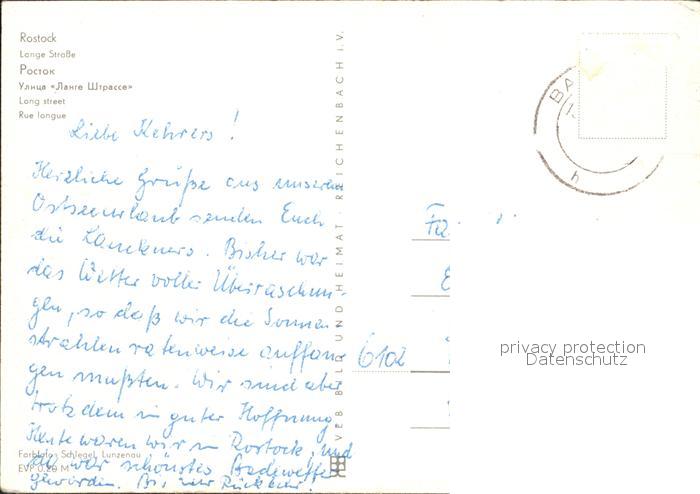 Rostock
Lange Straße
Росток
Улица «Ланге Штрассе»
Long street
Rue longue
Liebe Kehrers!
Herzliche Grüße aus unserem
Ostseeurlaub senden Euch
die Lauckners. Bisher war
das Wetter voller Überraschun-
gen, so daß wir die Sonnen-
strahlen ratenweise auffan-
gen mußten. Wir sind aber
trotzdem in guter Hoffnung.
Heute waren wir in Rostock, und
da war schönstes Badewetter
geworden. Bis zur Rückkehr!
Farbfoto: Schlegel, Lunzenau
EVP 0.20 M
VEB BILD UND HEIMAT · REICHENBACH i. V.
BA
h
Fa.
6102
privacy protection
Datenschutz